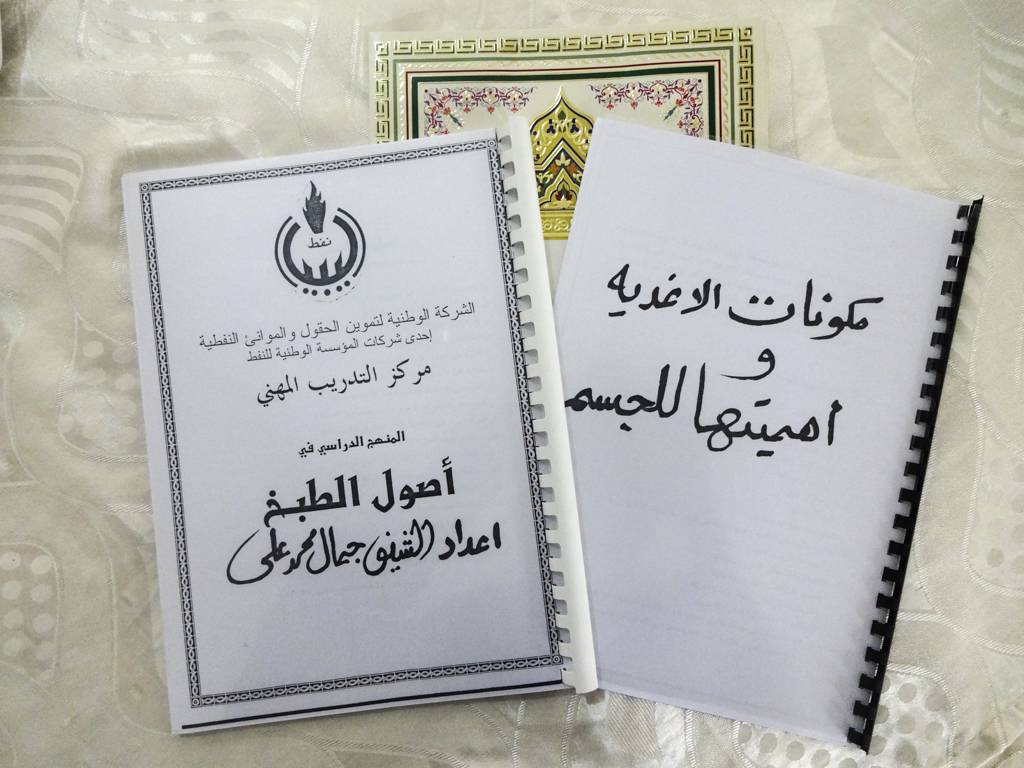 نفط
ليبيا
الشركة الوطنية لتموين الحقول والموانئ النفطية
إحدى شركات المؤسسة الوطنية للنفط
مركز التدريب المهني
المنهج الدراسي في
أصول الطبخ
اعداد الشيف جمال محمد علي
مكونات الاغذيه
و
اهميتها للجسم